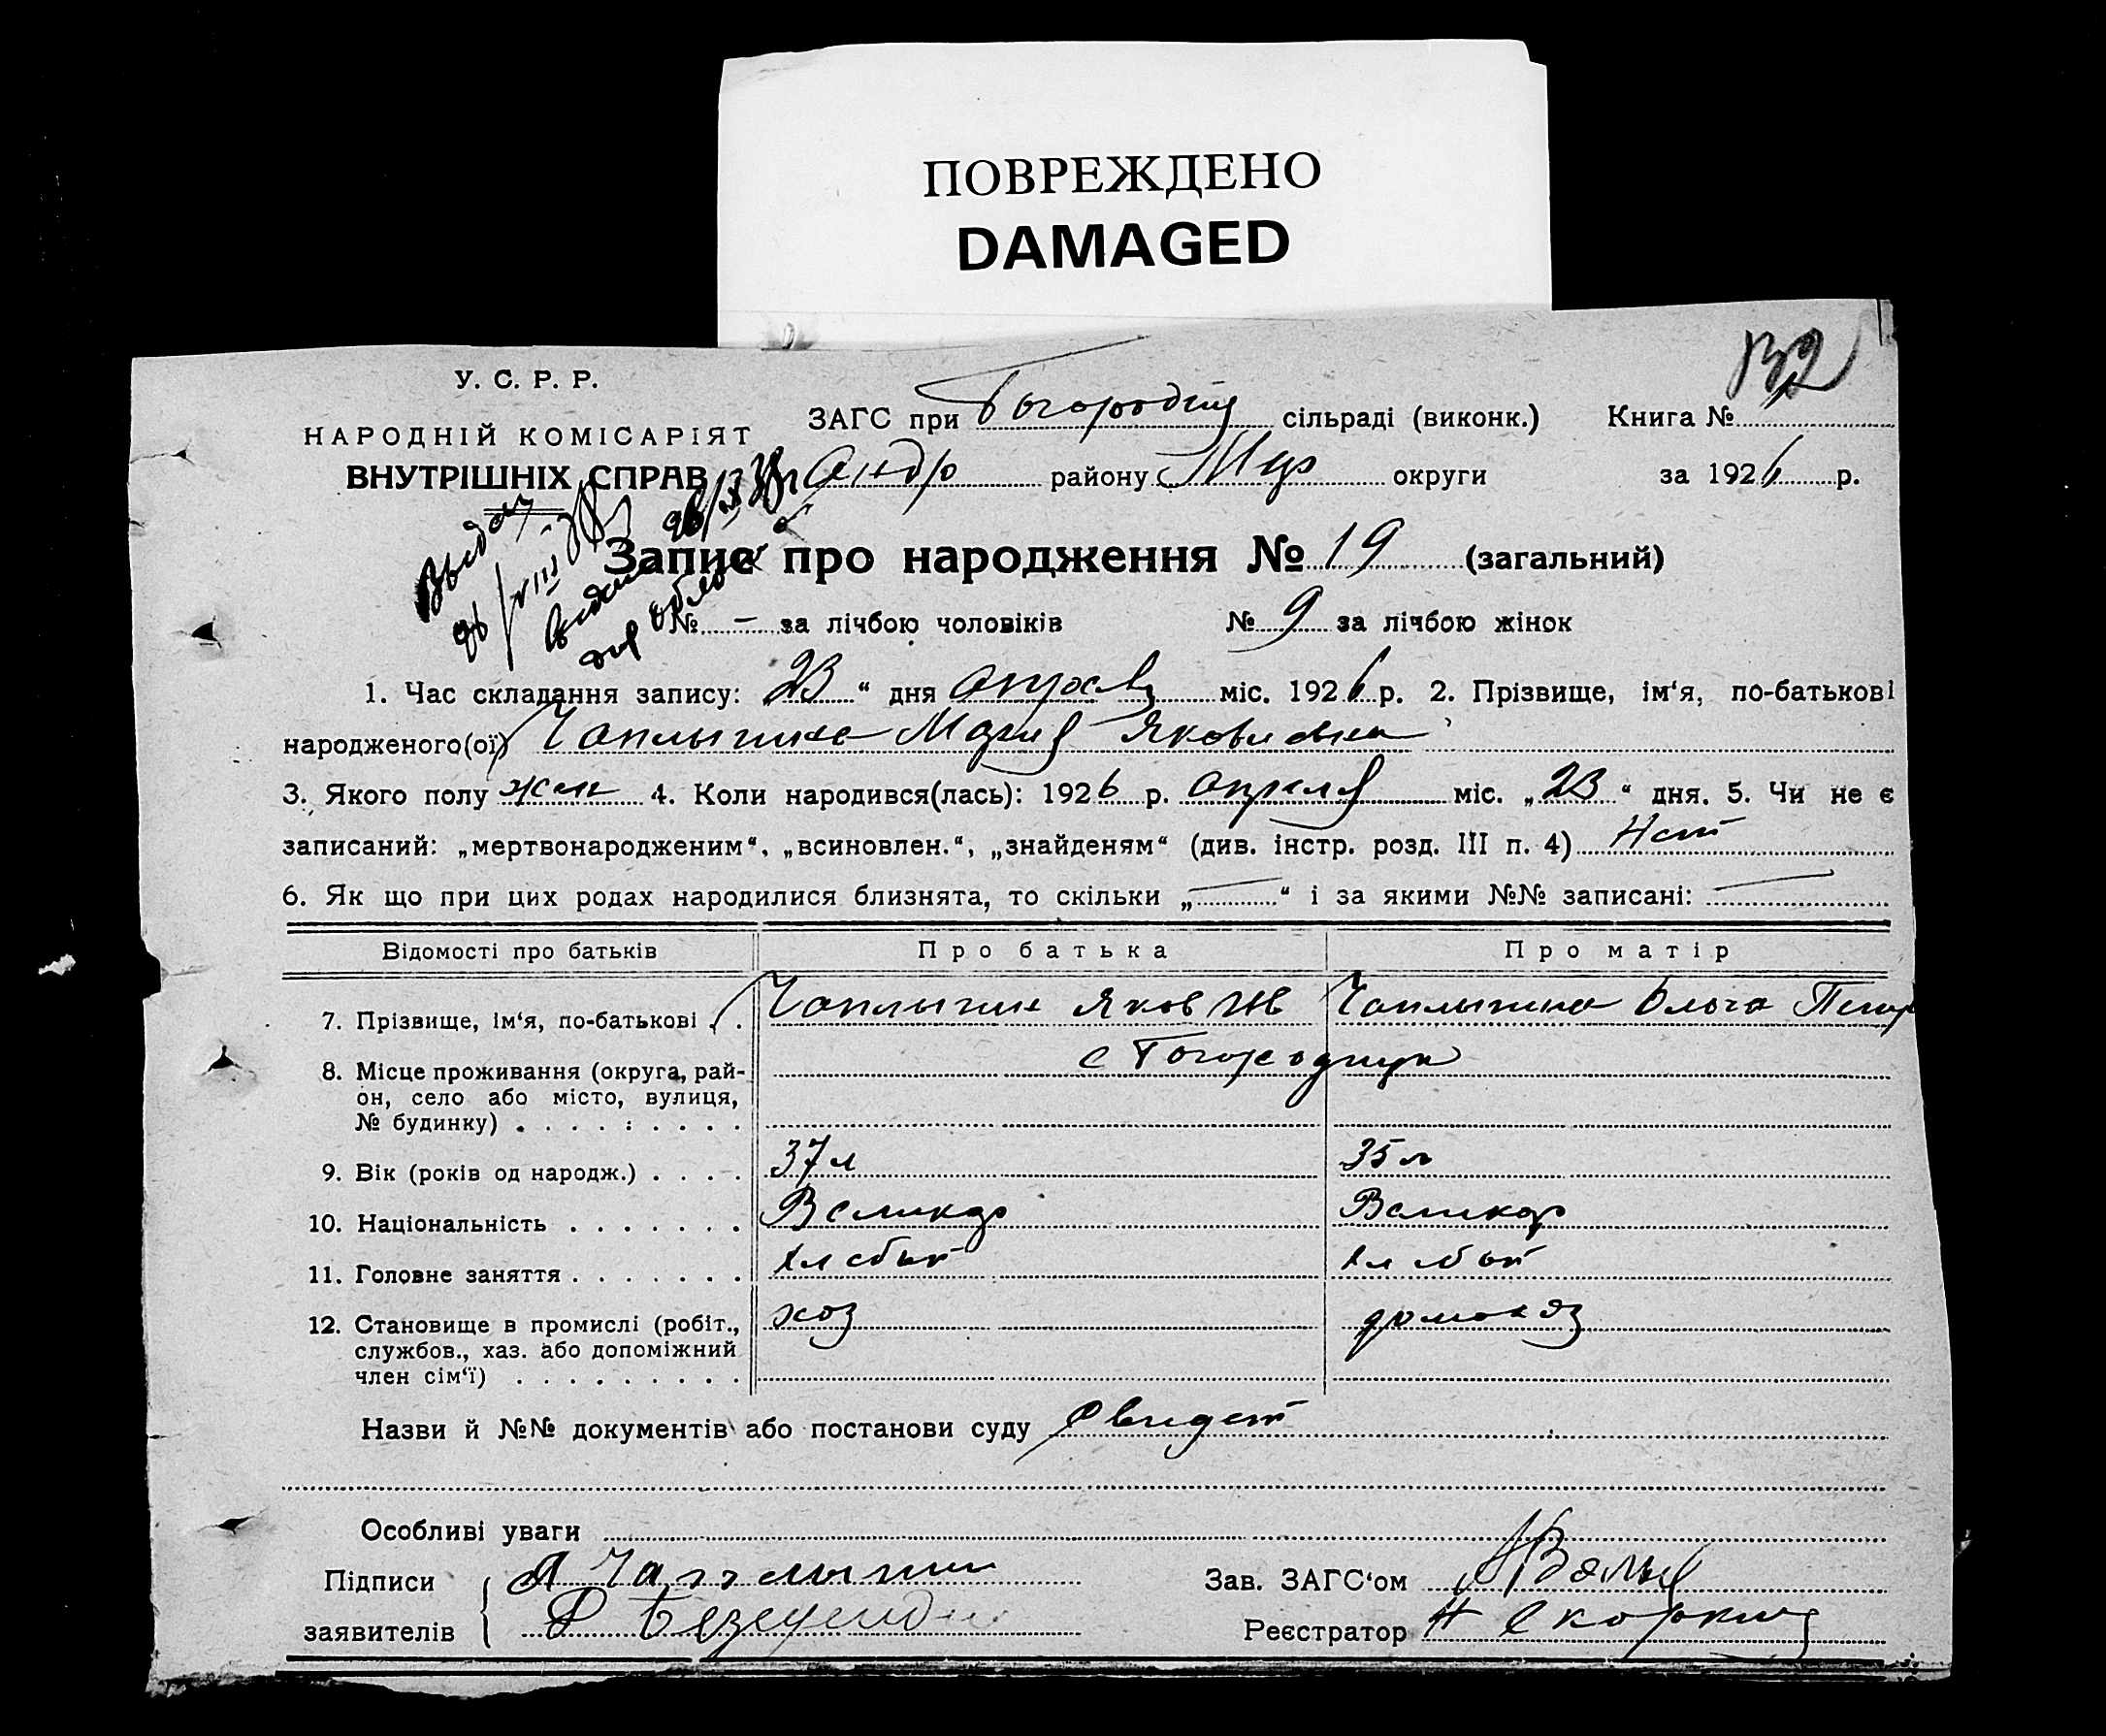 ПОВРЕЖДЕНО
DAMAGED
132
У. С. Р. Р.
НАРОДНІЙ КОМІСАРІЯТ
ВНУТРІШНІХ СПРАВ
ЗАГС при сільраді (виконк.) Книга №
Андр району округи за 1926 р.
Выдан
Запис про народження № 19 (загальний)
№ — за лічбою чоловіків № 9 за лічбою жінок
1. Час складання запису: „23“ дня апреля міс. 1926 р. 2. Прізвище, ім‘я, по-батькові
народженого(ої) Чаплыгина Мария Яковлевна
3. Якого полу жен 4. Коли народився(лась): 1926 р. апреля міс. „23“ дня. 5. Чи не є
записаний: „мертвонародженим“, „всиновлен.“, „знайденям“ (див. інстр. розд. III п. 4) Нет
6. Як що при цих родах народилися близнята, то скільки „—“ і за якими №№ записані: —
Відомості про батьків Про батька Про матір
7. Прізвище, ім‘я, по-батькові . . Чаплыгин Яков Чаплыгина Ольга
8. Місце проживання (округа, рай-
он, село або місто, вулиця,
№ будинку) . . . . . . . . .
9. Вік (років од народж.) . . . . 37 л 35 л
10. Національність . . . . . . . Великор Великор
11. Головне заняття . . . . . . . Хлебоп Хлебоп
12. Становище в промислі (робіт.,
службов., хаз. або допоміжний
член сім‘ї) . . . . . . . . . хоз домохоз
Назви й №№ документів або постанови суду Свидет
Особливі уваги
Підписи Я Чаплыгин Зав. ЗАГС‘ом
заявителів Реєстратор